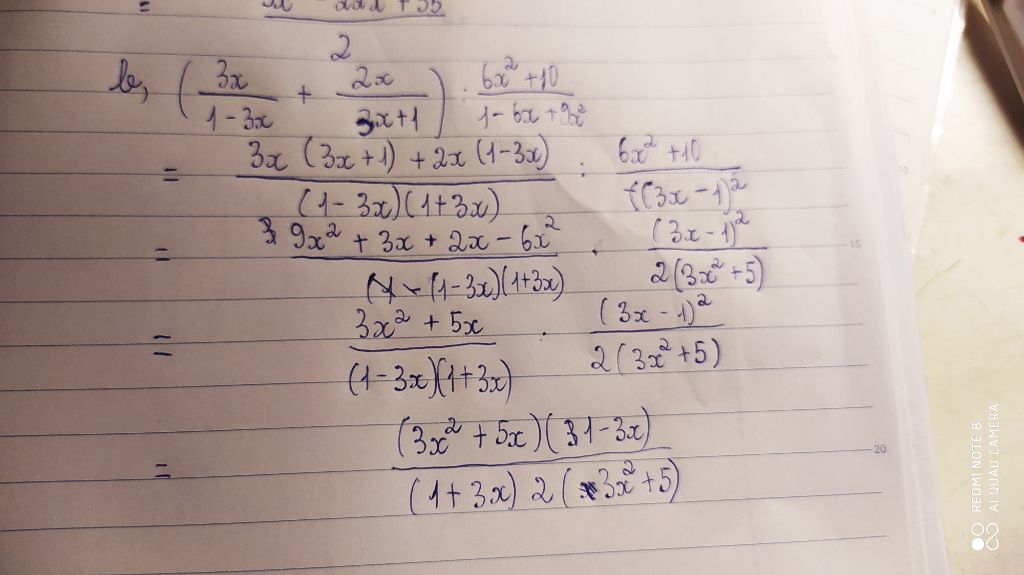 2
b, (3x/(1-3x) + 2x/(3x+1)) : (6x²+10)/(1-6x+9x²)
= (3x (3x+1) + 2x (1-3x))/((1-3x)(1+3x)) : (6x²+10)/((3x-1)²)
= (9x² + 3x + 2x - 6x²)/((1-3x)(1+3x)) . (3x-1)²/(2(3x²+5))
= (3x² + 5x)/((1-3x)(1+3x)) . (3x-1)²/(2(3x²+5))
= ((3x² + 5x)(1-3x))/((1+3x) 2(3x²+5))
15
20
REDMI NOTE 8
AI QUAD CAMERA